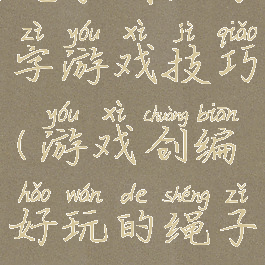 zì yóu xì jì qiǎo
字游戏技巧
yóu xì chuàng biān
(游戏创编
hǎo wán de shéng zǐ
好玩的绳子